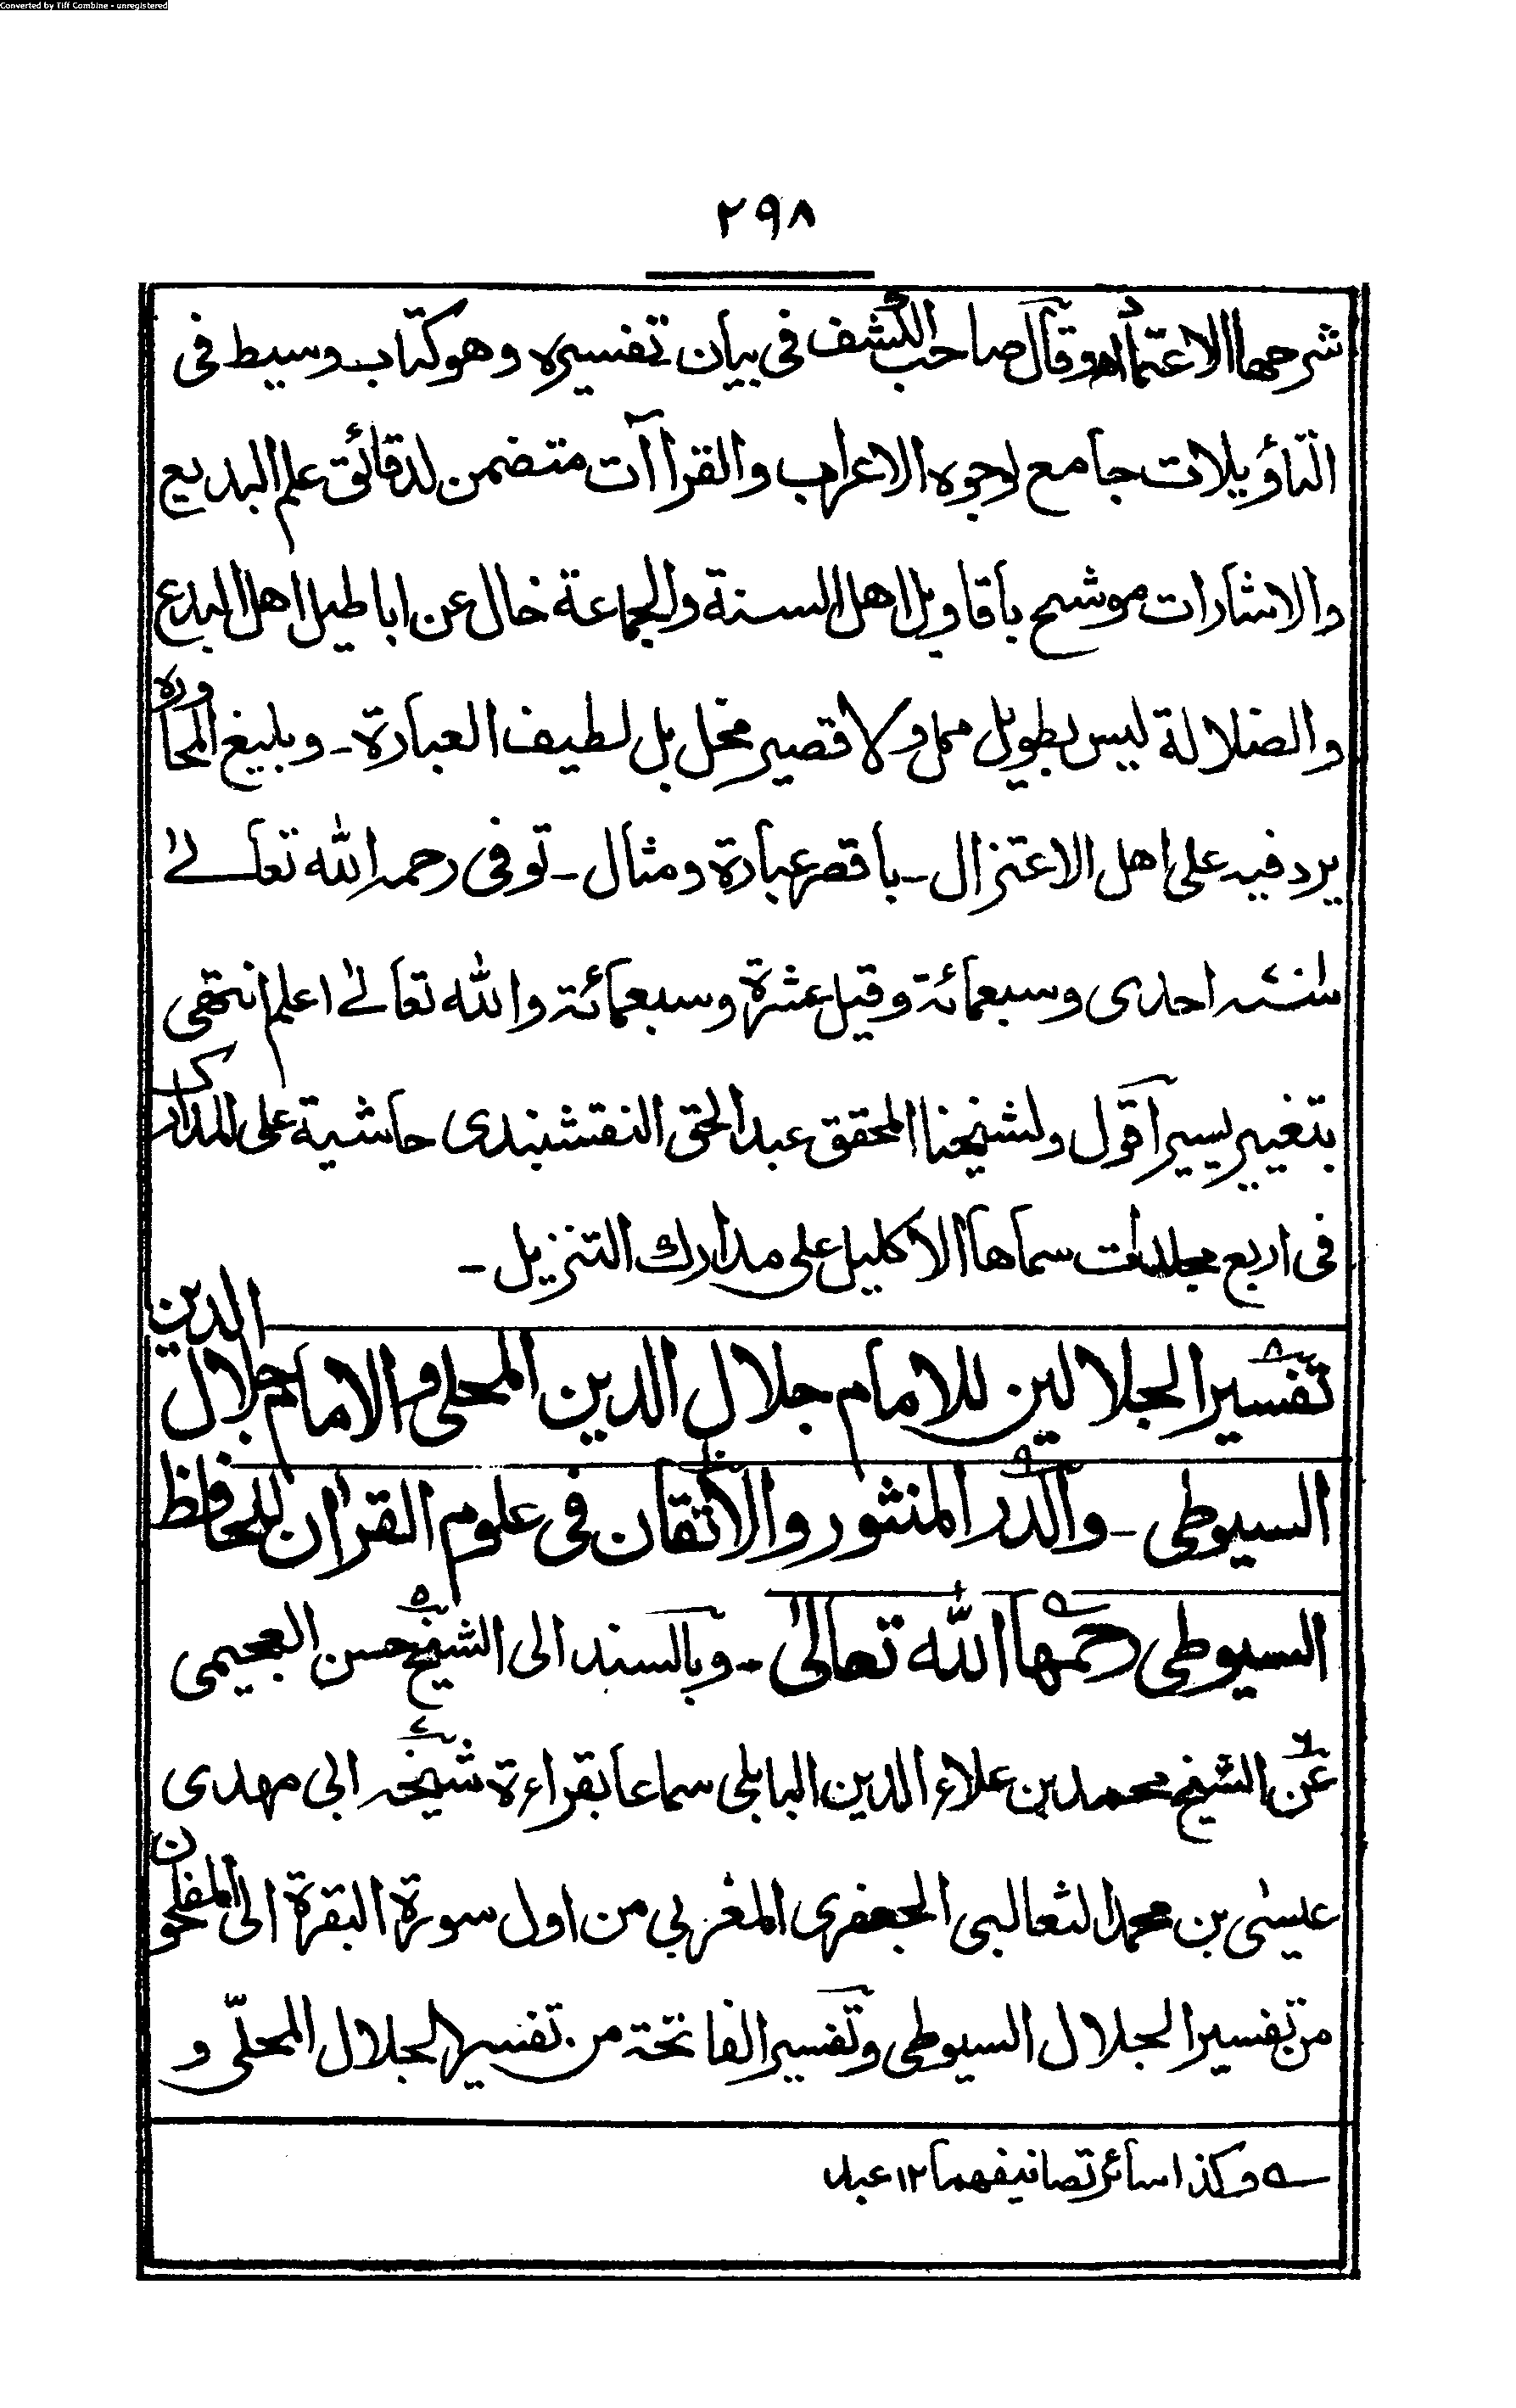 Converted by Tiff Combine - unregistered
۲۹۸
شرحها الاعتماد وقال صاحب الكشف فى بيان تفسيره وهو كتاب وسيط فى
التاؤيلات جامع لوجوه الاعراب والقراآت متضمن لدقائق علم البديع
والاشارات موشح باقاويل اهل السنة والجماعة خال عن اباطيل اهل البدع
والضلالة ليس بطويل ممل ولا قصير مخل بل لطيف العبارة - وبليغ المحاوره
يرد فيه على اهل الاعتزال - باقصر عبارة ومثال - توفى رحمه الله تعالىٰ
سنه احدى وسبعمائة وقيل عشرة وسبعمائة والله تعالىٰ اعلم انتهى
بتغيير يسير اقول ولشيخنا المحقق عبد الحق النقشبندى حاشية على المدارك
فى اربع مجلدات سماها الاكليل على مدارك التنزيل -
تفسير الجلالين للامام جلال الدين المحلى والامام جلال الدين
السيوطى - والدر المنثور والاتقان فى علوم القرآن للحافظ
السيوطى رحمها الله تعالىٰ - وبالسند الى الشيخ حسن العجيمى
عن الشيخ محمد بن علاء الدين البابلى سماعا بقراءة شيخه ابى مهدى
عيسىٰ بن محمد الثعالبى الجعفرى المغربي من اول سورة البقرة الى المفلحون
من تفسير الجلال السيوطى وتفسير الفاتحة من تفسير الجلال المحلّى و
ـه وكذا سائر تصانيفهما ۱۲ عبد